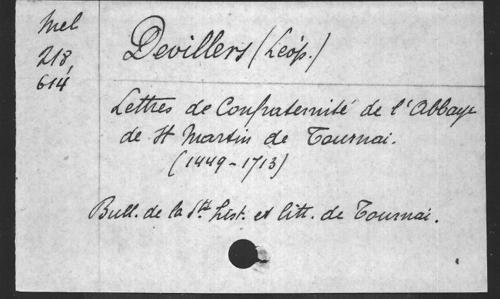 Mel
218,
614
Devillers (Léop.)
Lettres de Confraternité de l'Abbaye
de St Martin de Tournai.
(1449-1713)
Bull. de la Sté hist. et litt. de Tournai.